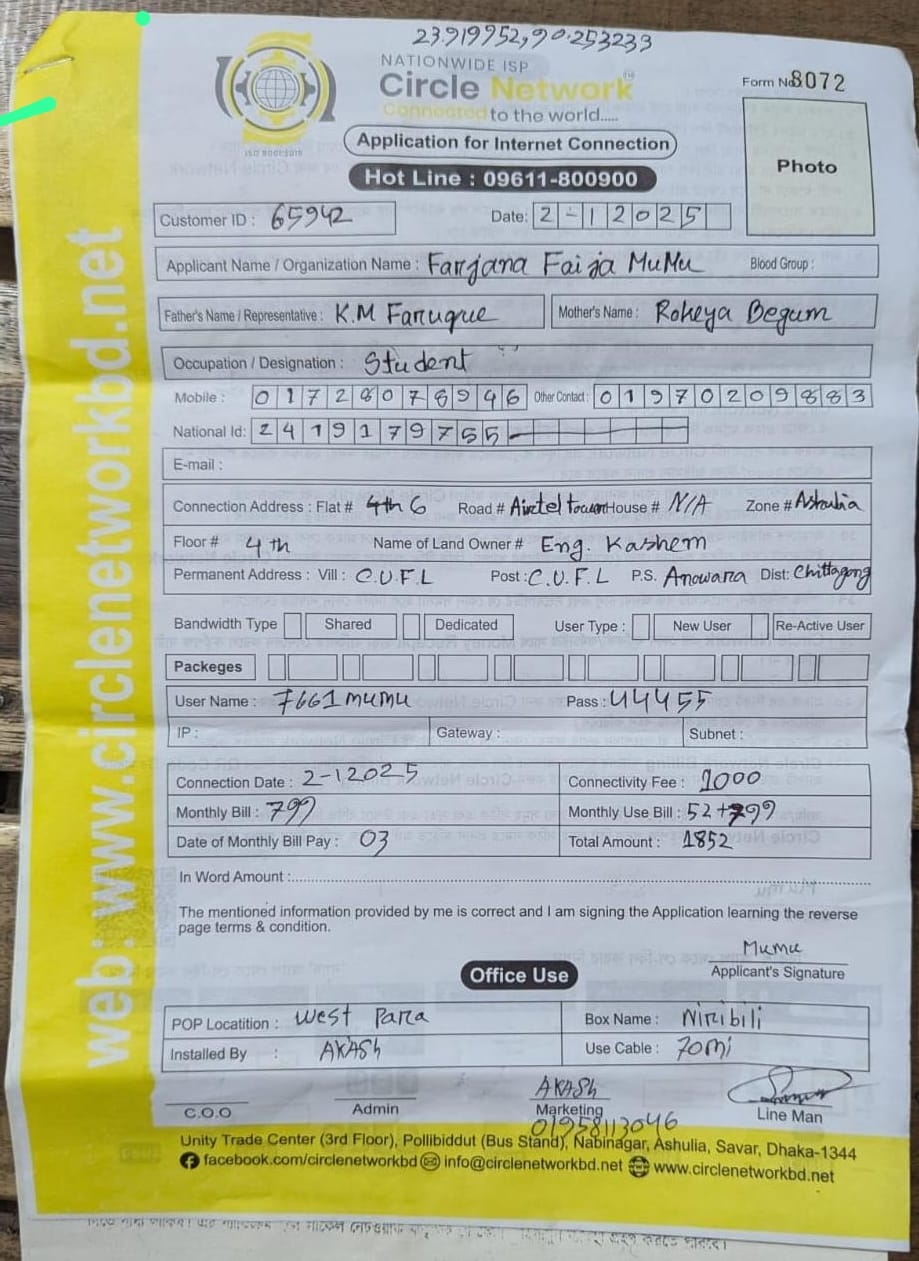 23.919952, 90.253233
NATIONWIDE ISP
Circle Network
Connected to the world.....
ISO 9001:2015
Form No 8072
Application for Internet Connection
Photo
Hot Line : 09611-800900
Customer ID : 65942 Date: 2-12025
Applicant Name / Organization Name : Farjana Faija MuMu Blood Group :
Father's Name / Representative : K.M Faruque Mother's Name : Rokeya Begum
Occupation / Designation : Student
Mobile : 01728078946 Other Contact : 01970209883
National Id: 2419179755
E-mail :
Connection Address : Flat # 4th 6 Road # Airtel tower House # N/A Zone # Ashulia
Floor # 4th Name of Land Owner # Eng. Kashem
Permanent Address : Vill : C.U.F.L Post : C.U.F.L P.S. Anowara Dist: Chittagong
Bandwidth Type Shared Dedicated User Type : New User Re-Active User
Packeges
User Name : 7661mumu Pass : 44455
IP : Gateway : Subnet :
Connection Date : 2-12025 Connectivity Fee : 1000
Monthly Bill : 799 Monthly Use Bill : 52+799
Date of Monthly Bill Pay : 03 Total Amount : 1852
In Word Amount :
The mentioned information provided by me is correct and I am signing the Application learning the reverse
page terms & condition.
Mumu
Applicant's Signature
Office Use
POP Locatition : West Para Box Name : Niribili
Installed By : AKASh Use Cable : 70mi
AKASh
C.O.O Admin Marketing Line Man
01958113046
Unity Trade Center (3rd Floor), Pollibiddut (Bus Stand), Nabinagar, Ashulia, Savar, Dhaka-1344
facebook.com/circlenetworkbd info@circlenetworkbd.net www.circlenetworkbd.net
web: www.circlenetworkbd.net